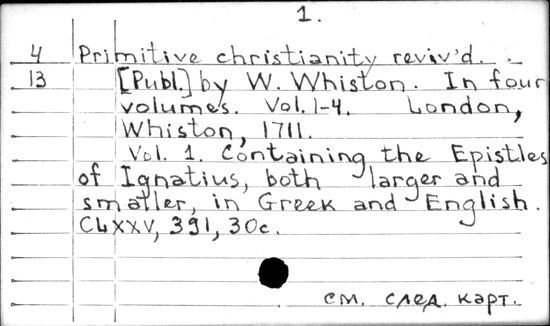 1.
4 Primitive christianity reviv'd.
13 [Publ.] by W. Whiston. In four
volumes. Vol. 1-4. London,
Whiston, 1711.
Vol. 1. Containing the Epistles
of Ignatius, both larger and
smatler, in Greek and English.
CLXXV, 391, 30c.
см. след. карт.